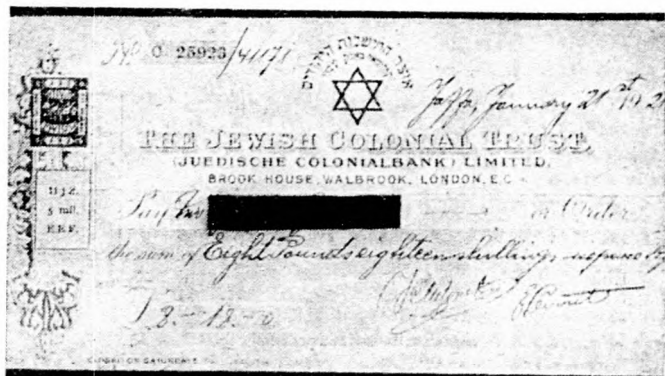 No. O 25923/41171
אוצר התישבות היהודים
Jaffa, January 21st 192
THE JEWISH COLONIAL TRUST,
(JUEDISCHE COLONIALBANK) LIMITED,
BROOK HOUSE, WALBROOK, LONDON, E.C
5 mill.
E.E.F.
Pay or Order
the sum of Eight Pounds eighteen shillings
£ 8-18-0
CLOSED ON SATURDAYS